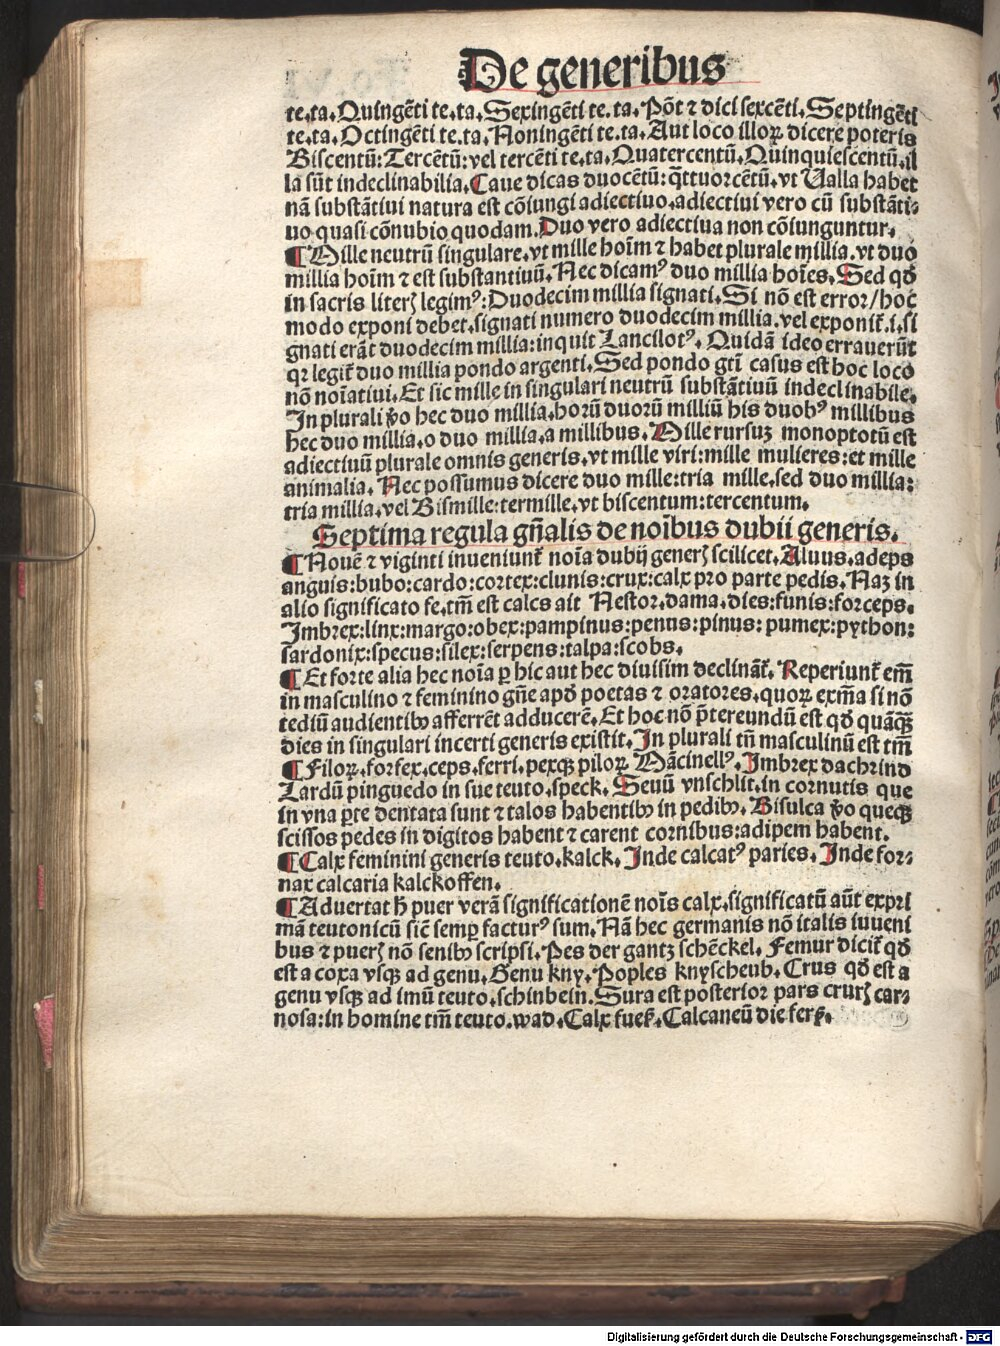 De generibus
te.ta. Quingẽti te.ta. Sexingẽti te.ta. Põt ⁊ dici sexcẽti. Septingẽti
te.ta. Octingẽti te.ta. Noningẽti te.ta. Aut loco illoꝝ dicere poteris
Biscentũ: Tercẽtũ: vel tercẽti te.ta. Quatercentũ. Quinquiescentũ. il
la sũt indeclinabilia. Caue dicas duocẽtũ: q̃ttuorcẽtũ. vt Ualla habet
nã substãtiui natura est cõiungi adiectiuo. adiectiui vero cũ substãti⸗
uo quasi cõnubio quodam. Duo vero adiectiua non cõiunguntur.
¶ Mille neutrũ singulare. vt mille hoim̃ ⁊ habet plurale millia. vt duo
millia hoim̃ ⁊ est substantiuũ. Nec dicamꝰ duo millia hoĩes. Sed qđ
in sacris literꝭ legimꝰ: Duodecim millia signati. Si nõ est error/hoc
modo exponi debet. signati numero duodecim millia. vel exponit̃. i. si
gnati erãt duodecim millia: inquit Lancilotꝰ. Quidã ideo errauerũt
qꝛ legit̃ duo millia pondo argenti. Sed pondo gtĩ casus est hoc loco
nõ noĩatiui. Et sic mille in singulari neutrũ substãtiuũ indeclinabile.
In plurali ṽo hec duo millia. horũ duorũ milliũ his duobꝰ millibus
hec duo millia. o duo millia. a millibus. Mille rursuꝫ monoptotũ est
adiectiuũ plurale omnis generis. vt mille viri: mille mulieres: et mille
animalia. Nec possumus dicere duo mille: tria mille. sed duo millia:
tria millia. vel Bismille: termille. vt biscentum: tercentum.
Septima regula gñalis de noĩbus dubii generis.
¶ Nouẽ ⁊ viginti inueniunt̃ noĩa dubij generꝭ scilicet. Aluus. adeps
anguis: bubo: cardo: cortex: clunis: crux: calx pro parte pedis. Naꝫ in
alio significato fe. tm̃ est calcs ait Nestor. dama. dies: funis: forceps.
Imbrex: linx: margo: obex: pampinus: penus: pinus: pumex: python:
sardonix: specus: silex: serpens: talpa: scobs.
¶ Et forte alia hec noĩa ꝑ hic aut hec diuisim declinãt̃. Reperiunt̃ em̃
in masculino ⁊ feminino gñe apđ poetas ⁊ oratores. quoꝝ exm̃a si nõ
tediũ audientibꝰ afferrẽt adducerẽ. Et hoc nõ p̃tereundũ est qđ quãqꝫ
dies in singulari incerti generis existit. In plurali tñ masculinũ est tm̃
¶ Filoꝝ. forfex. ceps. ferri. pexqꝫ piloꝝ. Mãcinellꝰ. Imbrex dachrind
Lardũ pinguedo in sue teuto. speck. Seuũ vnschlit. in cornutis que
in vna ꝑte dentata sunt ⁊ talos habentibꝰ in pedibꝰ. Bisulca ṽo queqꝫ
scissos pedes in digitos habent ⁊ carent cornibus: adipem habent.
¶ Calx feminini generis teuto. kalck. Inde calcatꝰ paries. Inde for⸗
nax calcaria kalckoffen.
¶ Aduertat ħ puer verã significationẽ noĩs calx. significatũ aũt expri
mã teutonicũ siẽ semꝑ facturꝰ sum. Nã hec germanis nõ italis iuueni
bus ⁊ puerꝭ nõ senibꝰ scripsi. Pes der gantz schẽckel. Femur dicit̃ qđ
est a coxa vsqꝫ ad genu. Genu kny. Poples knyscheub. Crus qđ est a
genu vsqꝫ ad imũ teuto. schinbein. Sura est posterior pars crurꝭ car⸗
nosa: in homine tm̃ teuto. wad. Calx fueß. Calcaneũ die ferß.
Digitalisierung gefördert durch die Deutsche Forschungsgemeinschaft - DFG